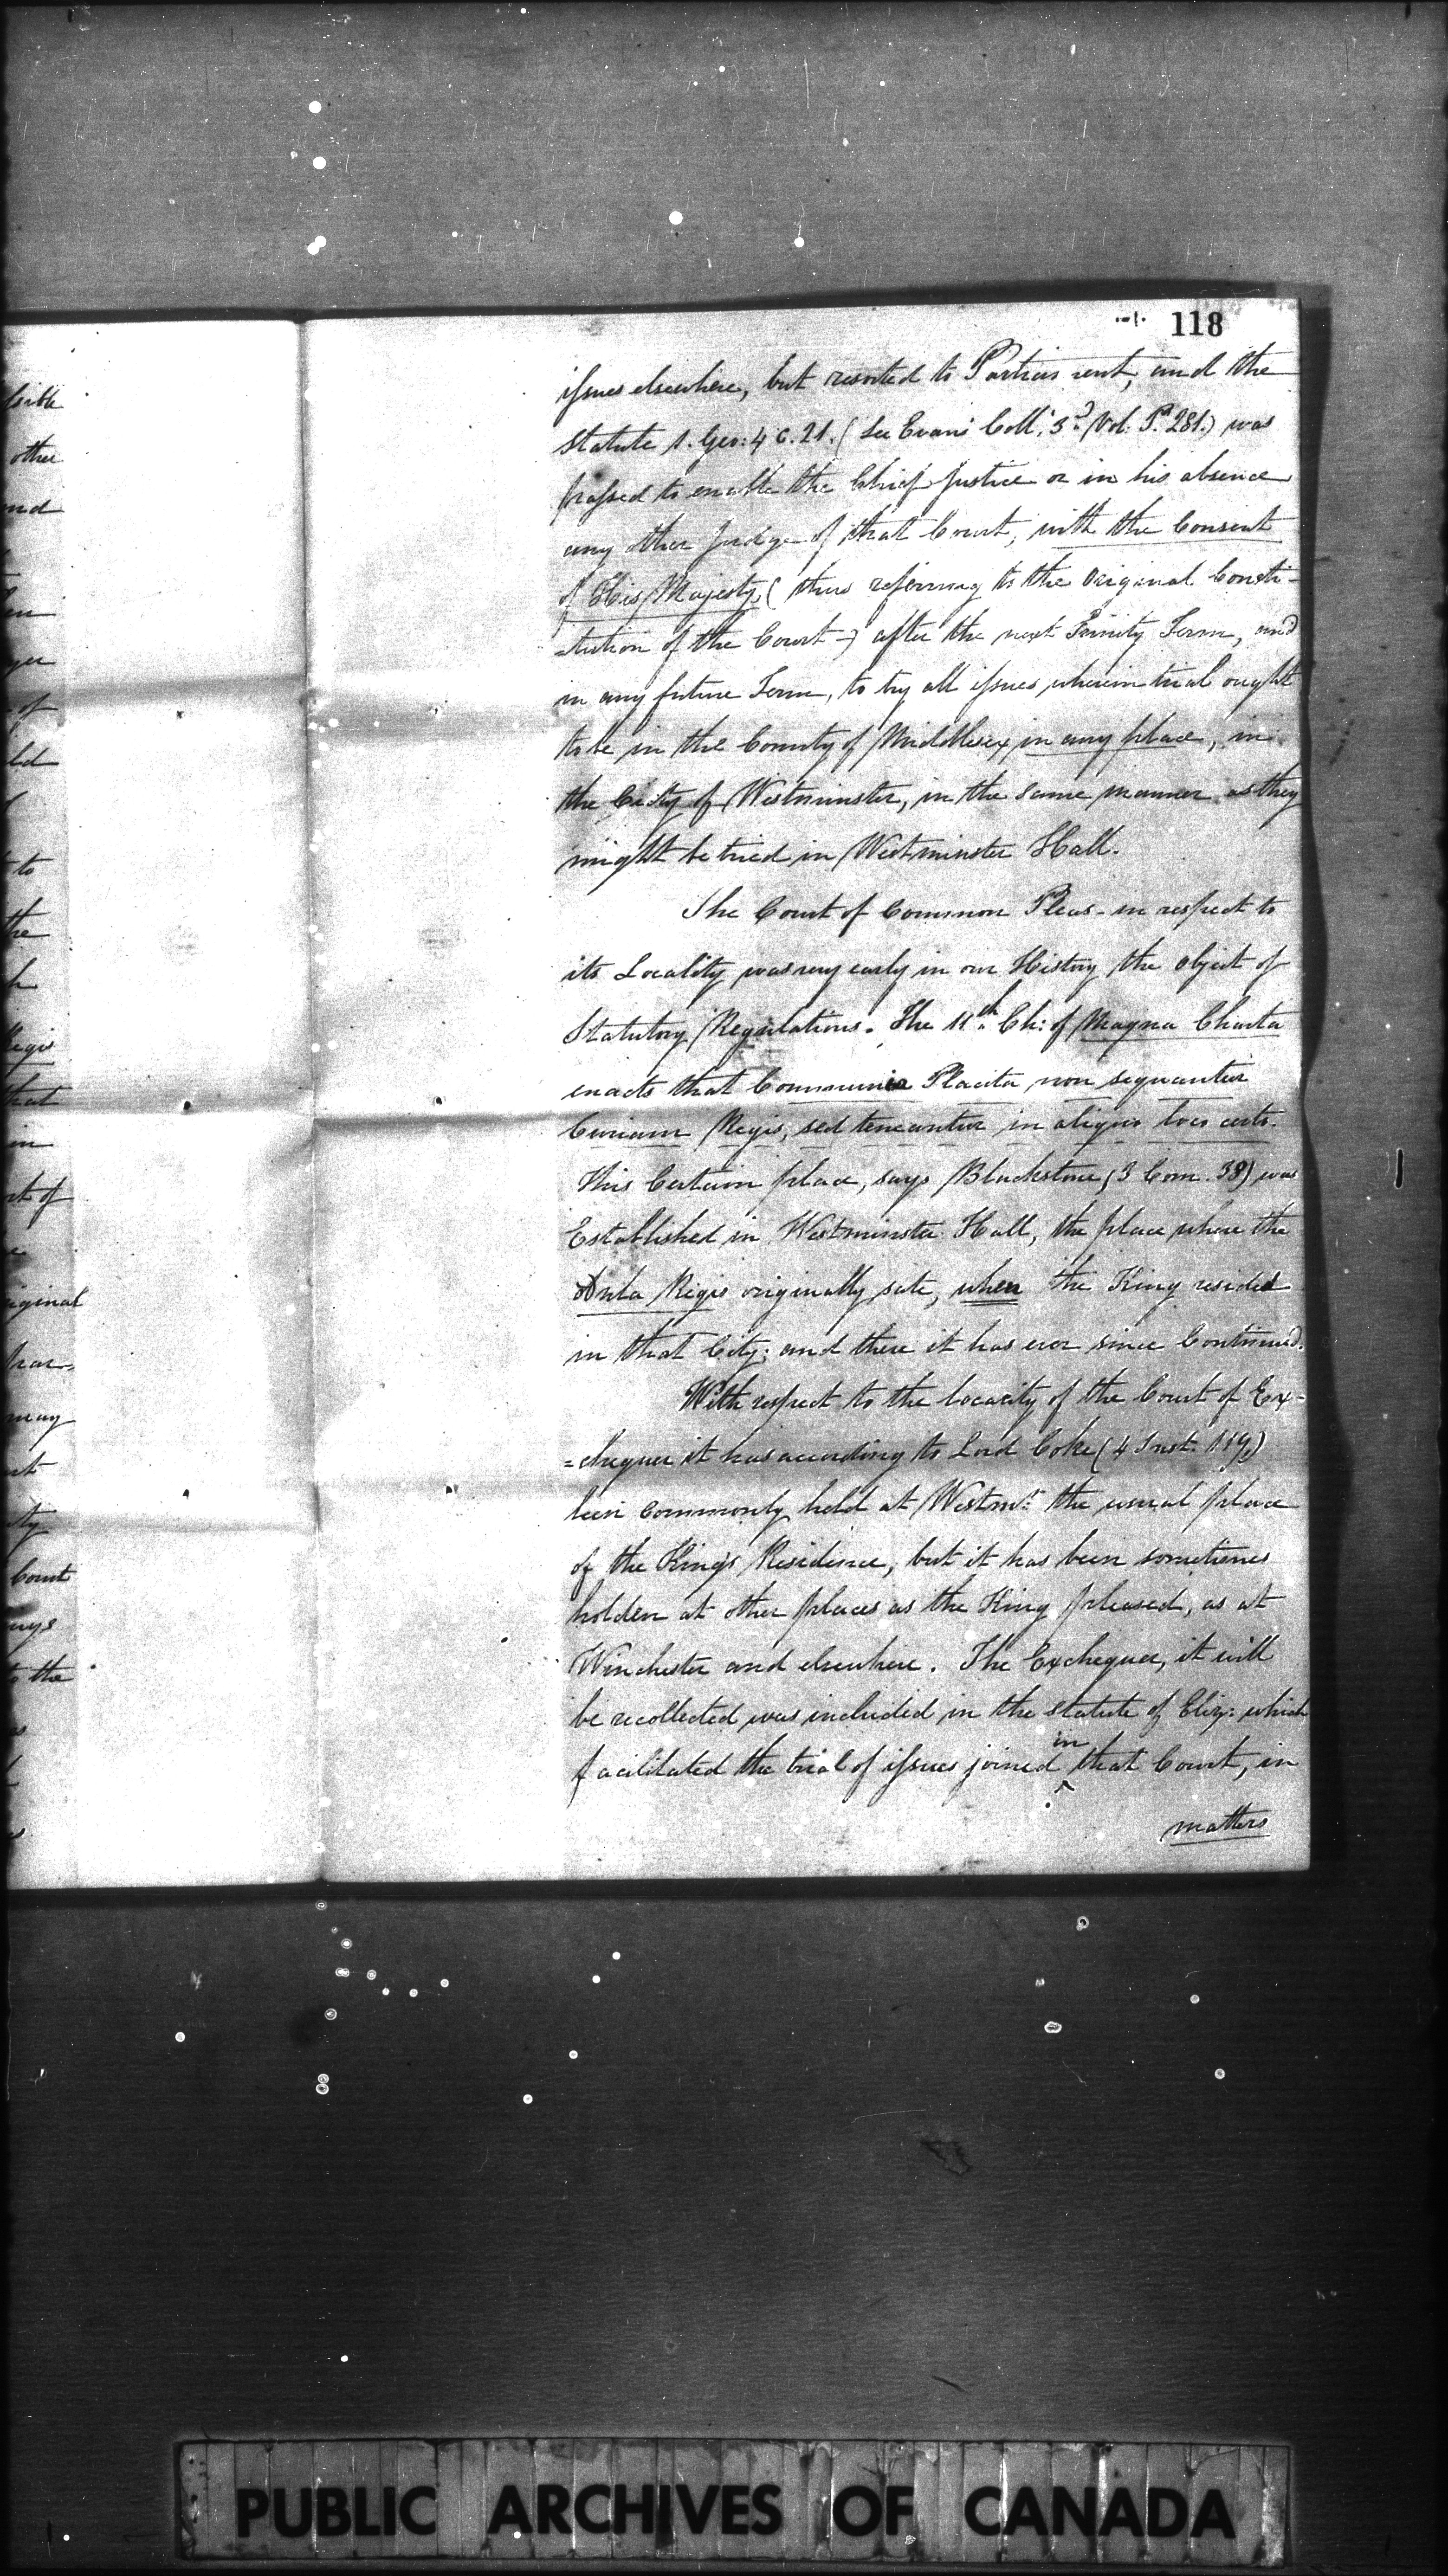 118
issues elsewhere, but resorted to Parliament, and the
Statute 1. Geo: 4 C. 21. (See Evans' Coll: 3d. Vol: P. 281.) was
passed to enable the Chief Justice or in his absence
any other Judge of that Court, with the Consent
of His Majesty (thus referring to the Original Consti-
-tution of the Court -) after the next Trinity Term, and
in any future Term, to try all issues wherein trial ought
to be in the County of Middlesex in any place, in
the City of Westminster, in the same manner as they
might be tried in Westminster Hall.
The Court of Common Pleas - in respect to
its Locality was very early in our History the object of
Statutory Regulations. The 11th. Ch: of Magna Charta
enacts that Communia Placita non sequantur
Curiam Regis, sed teneantur in aliquo loco certo.
This Certain place, says Blackstone, (3 Com. 38) was
Established in Westminster Hall, the place where the
Aula Regis originally sate, when the King resided
in that City; and there it has ever since Continued.
With respect to the locacity of the Court of Ex-
=chequer it has according to Lord Coke (4 Inst. 119,)
been commonly held at Westmr. the usual place
of the King's Residence, but it has been sometimes
holden at other places as the King pleased, as at
Winchester and elsewhere. The Exchequer, it will
be recollected was included in the Statute of Eliz: which
facilitated the trial of issues joined in that Court, in
matters
other
of
to
the
that
in
may
Court
to the
PUBLIC ARCHIVES OF CANADA